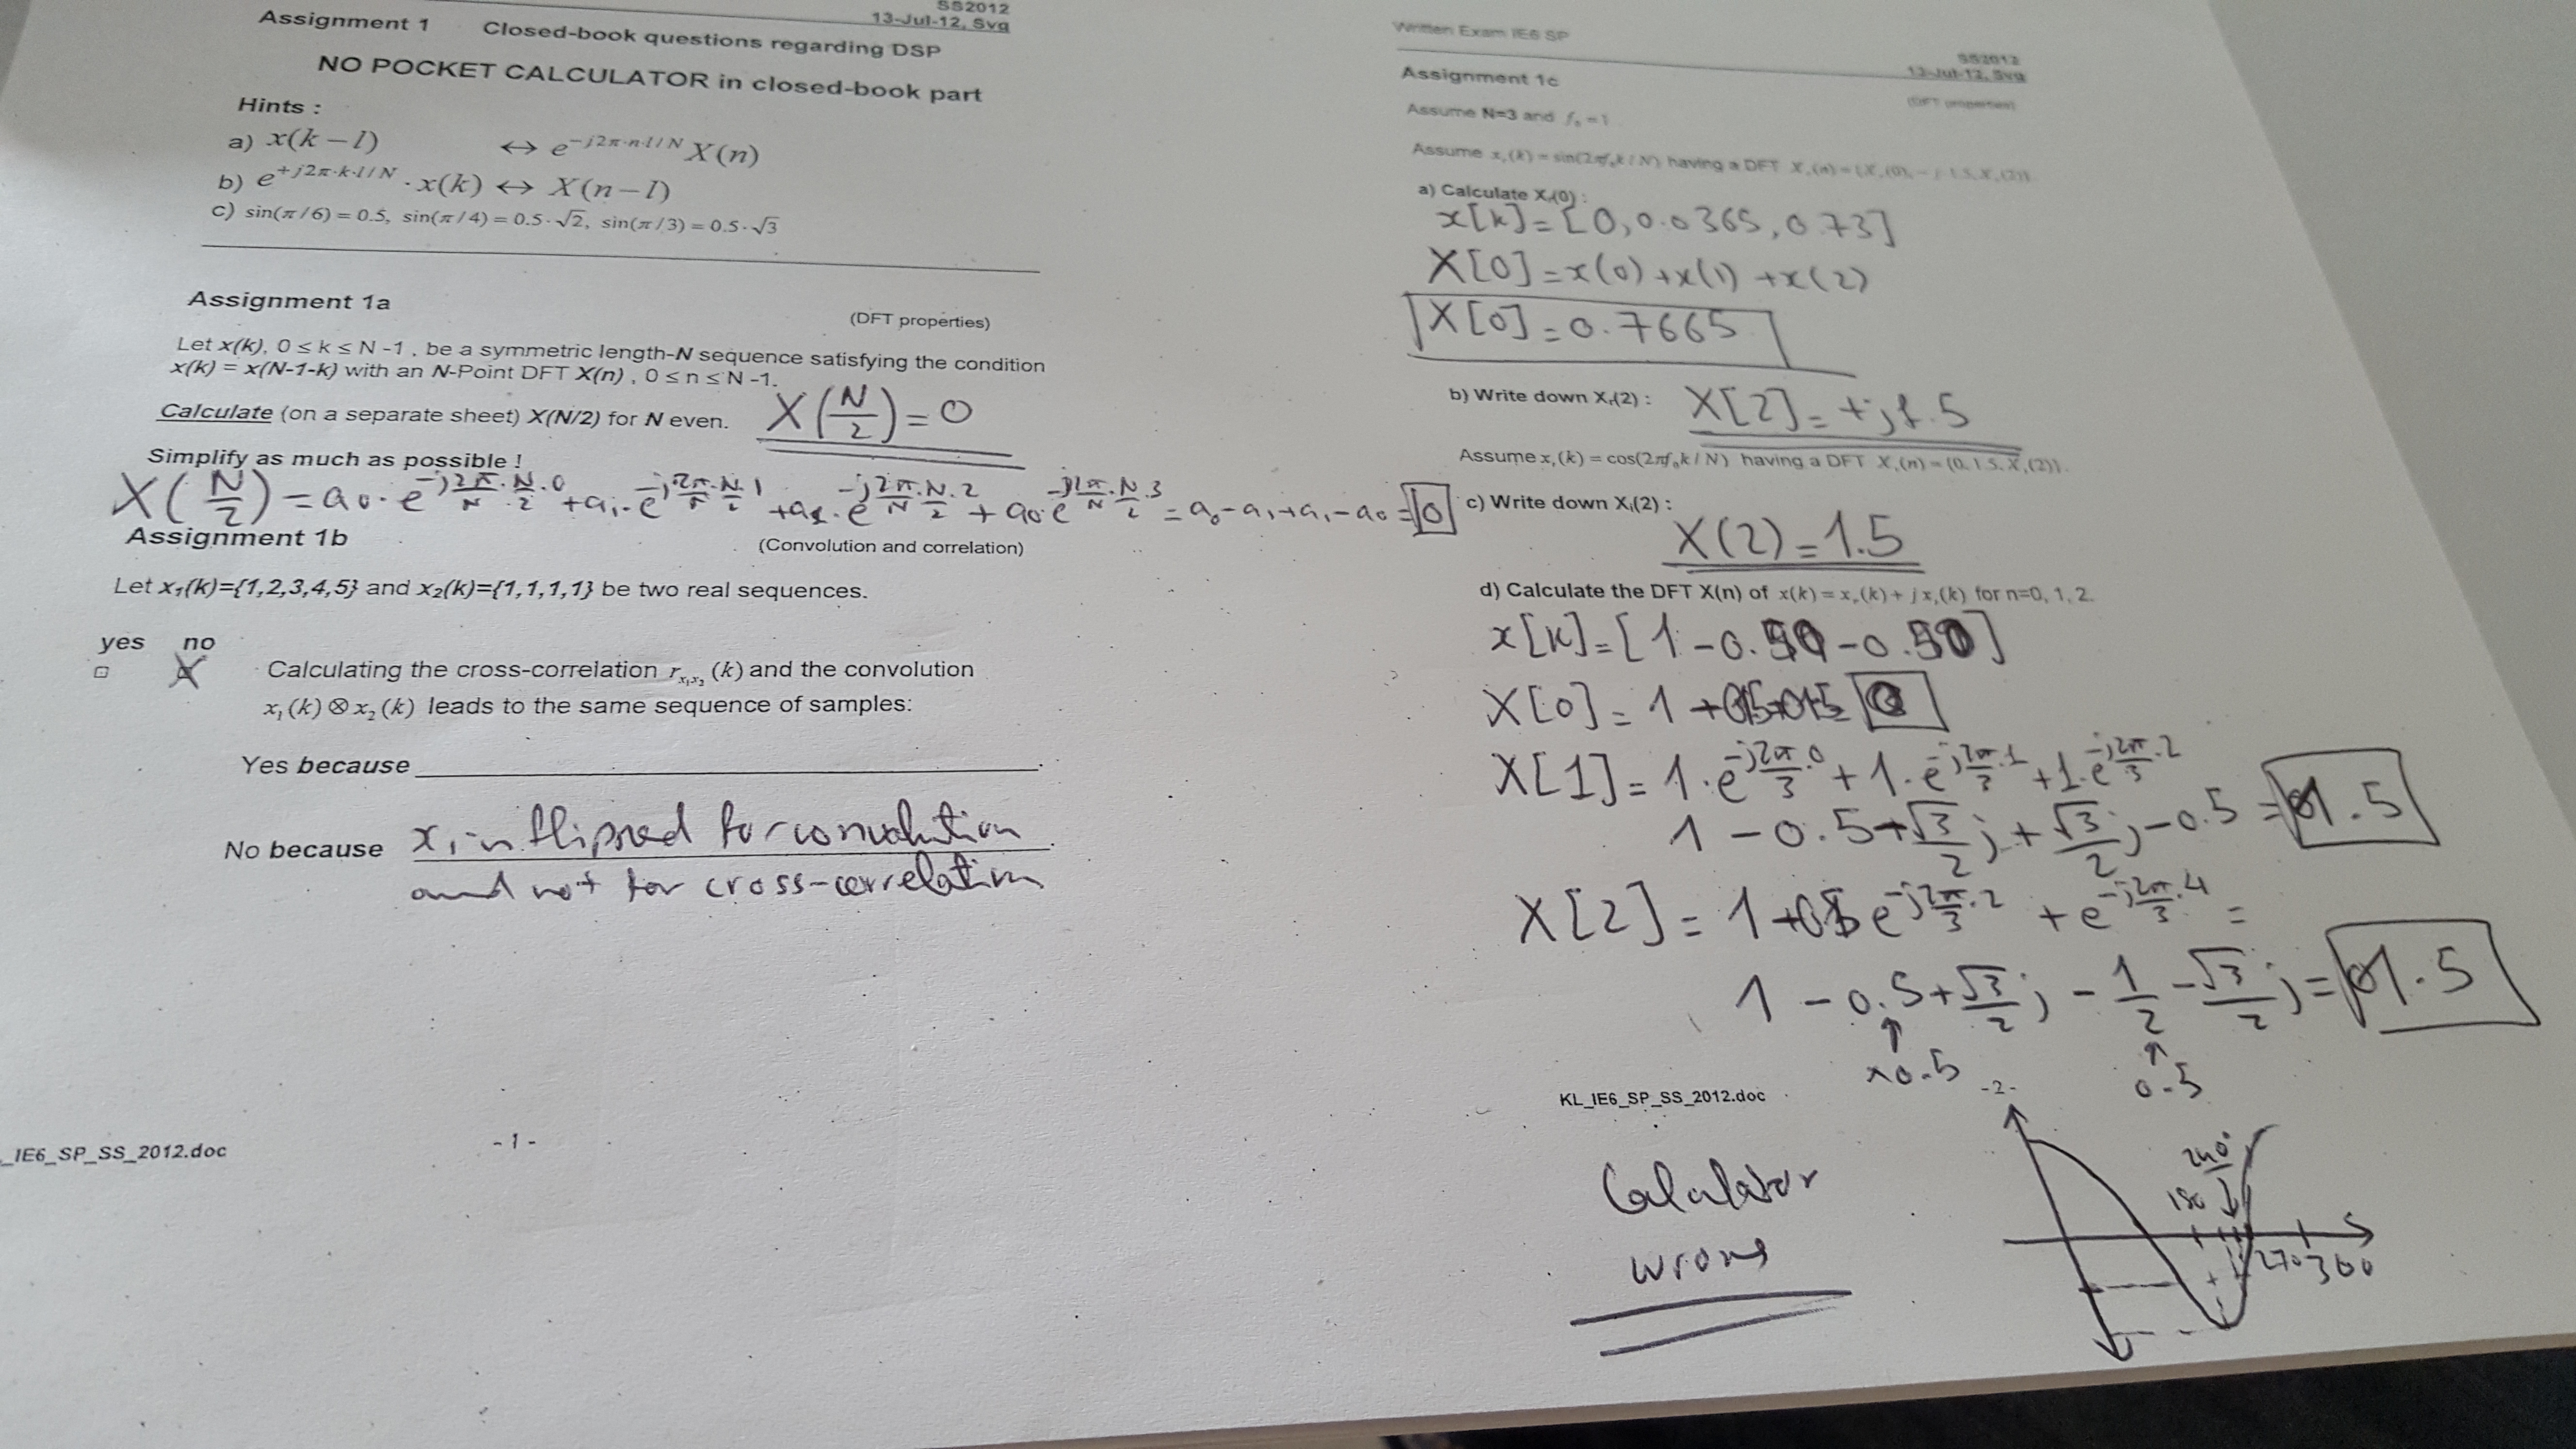 SS2012
13-Jul-12, Svg
Assignment 1 Closed-book questions regarding DSP
NO POCKET CALCULATOR in closed-book part
Hints :
a) x(k − l) ↔ e^{−j2π·n·l/N} X(n)
b) e^{+j2π·k·l/N} · x(k) ↔ X(n − l)
c) sin(π/6) = 0.5, sin(π/4) = 0.5·√2, sin(π/3) = 0.5·√3
Assignment 1a
(DFT properties)
Let x(k), 0 ≤ k ≤ N -1 , be a symmetric length-N sequence satisfying the condition
x(k) = x(N-1-k) with an N-Point DFT X(n) , 0 ≤ n ≤ N -1.
Calculate (on a separate sheet) X(N/2) for N even. X(N/2) = 0
Simplify as much as possible !
X(N/2) = a0 · e^{-j 2π/N · N/2 · 0} + a1 · e^{-j 2π/N · N/2 · 1} + a1 · e^{-j 2π/N · N/2 · 2} + a0 · e^{-j 2π/N · N/2 · 3} = a0 - a1 + a1 - a0 = 0
Assignment 1b
(Convolution and correlation)
Let x1(k)={1,2,3,4,5} and x2(k)={1,1,1,1} be two real sequences.
yes no
Calculating the cross-correlation r_{x1x2} (k) and the convolution
x1(k) ⊗ x2(k) leads to the same sequence of samples:
Yes because
No because x, is flipped for convolution
and not for cross-correlation
_IE6_SP_SS_2012.doc
- 1 -
Written Exam IE6 SP
SS2012
13-Jul-12, Svg
Assignment 1c
(DFT properties)
Assume N=3 and f0 = 1
Assume xr(k) = sin(2πf0k / N) having a DFT Xr(n) = {Xr(0), − j·1.5, Xr(2)}.
a) Calculate Xr(0) :
x[k] = [0, 0.0365, 0.73]
X[0] = x(0) + x(1) + x(2)
X[0] = 0.7665
b) Write down Xr(2) : X[2] = +j1.5
Assume xi(k) = cos(2πf0k / N) having a DFT Xi(n) = {0, 1.5, Xi(2)}.
c) Write down Xi(2) :
X(2) = 1.5
d) Calculate the DFT X(n) of x(k) = xr(k) + j xi(k) for n=0, 1, 2.
x[k] = [1 -0.50 -0.50]
X[0] = 1
X[1] = 1 · e^{-j 2π/3 · 0} + 1 · e^{-j 2π/3 · 1} + 1 · e^{-j 2π/3 · 2}
1 - 0.5 + √3/2 j + √3/2 j - 0.5 = 1.5
X[2] = 1 + e^{-j 2π/3 · 2} + e^{-j 2π/3 · 4} =
1 - 0.5 + √3/2 j - 1/2 - √3/2 j = 1.5
x0.5
0.5
KL_IE6_SP_SS_2012.doc
-2-
Calculator
wrong
240°
180
270 360